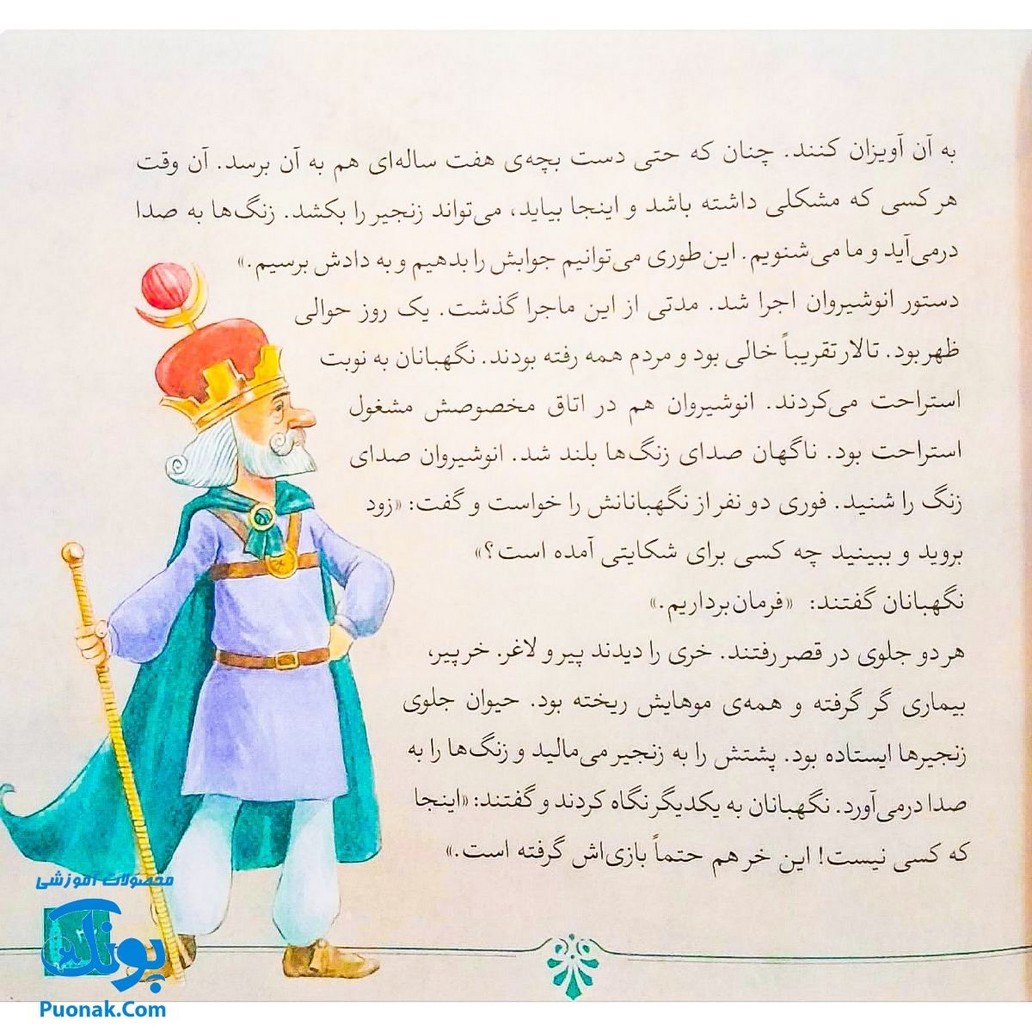 به آن آویزان کنند. چنان که حتی دست بچه‌ی هفت ساله‌ای هم به آن برسد. آن وقت
هر کسی که مشکلی داشته باشد و اینجا بیاید، می‌تواند زنجیر را بکشد. زنگ‌ها به صدا
درمی‌آید و ما می‌شنویم. این‌طوری می‌توانیم جوابش را بدهیم و به دادش برسیم.»
دستور انوشیروان اجرا شد. مدتی از این ماجرا گذشت. یک روز حوالی
ظهر بود. تالار تقریباً خالی بود و مردم همه رفته بودند. نگهبانان به نوبت
استراحت می‌کردند. انوشیروان هم در اتاق مخصوصش مشغول
استراحت بود. ناگهان صدای زنگ‌ها بلند شد. انوشیروان صدای
زنگ را شنید. فوری دو نفر از نگهبانانش را خواست و گفت: «زود
بروید و ببینید چه کسی برای شکایتی آمده است؟»
نگهبانان گفتند: «فرمان‌برداریم.»
هر دو جلوی در قصر رفتند. خری را دیدند پیر و لاغر. خر پیر،
بیماری گر گرفته و همه‌ی موهایش ریخته بود. حیوان جلوی
زنجیرها ایستاده بود. پشتش را به زنجیر می‌مالید و زنگ‌ها را به
صدا درمی‌آورد. نگهبانان به یکدیگر نگاه کردند و گفتند: «اینجا
که کسی نیست! این خر هم حتماً بازی‌اش گرفته است.»
محصولات آموزشی
پونک
Puonak.Com